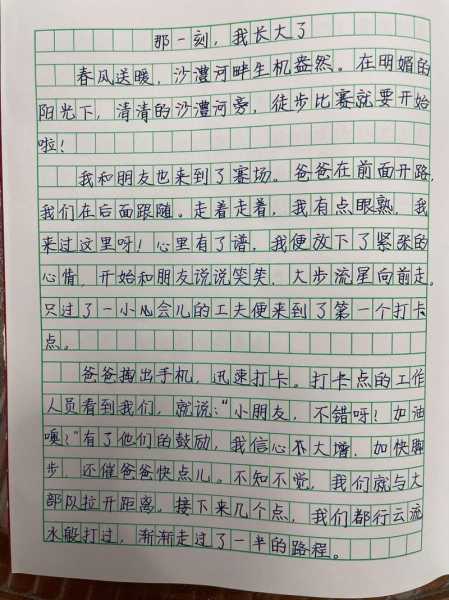 那一刻，我长大了
春风送暖，沙澧河畔生机盎然。在明媚的
阳光下，清清的沙澧河旁，徒步比赛就要开始
啦！
我和朋友也来到了赛场。爸爸在前面开路，
我们在后面跟随。走着走着，我有点眼熟，我
来过这里呀！心里有了谱，我便放下了紧张的
心情，开始和朋友说说笑笑，大步流星向前走。
只过了一小会儿的工夫便来到了第一个打卡
点。
爸爸掏出手机，迅速打卡。打卡点的工作
人员看到我们，就说：“小朋友，不错呀！加油
噢！”有了他们的鼓励，我信心大增，加快脚
步，还催爸爸快点儿。不知不觉，我们就与大
部队拉开距离。接下来几个点，我们都行云流
水般打过，渐渐走过了一半的路程。